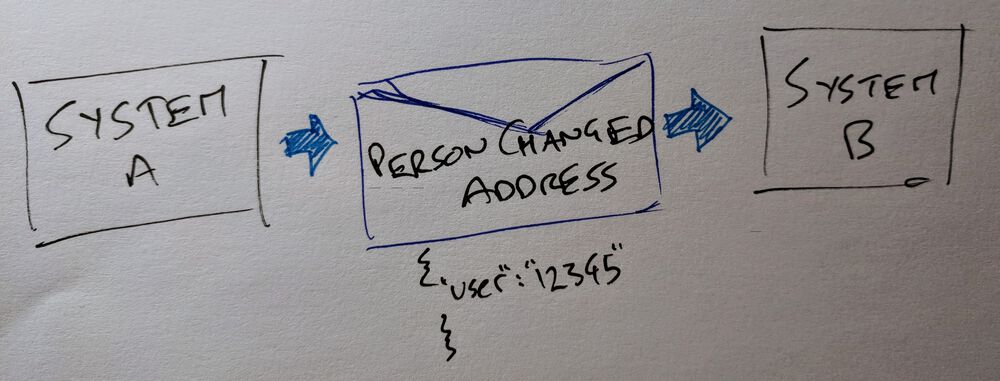 SYSTEM
A
PERSON CHANGED
ADDRESS
{"user":"12345"
}
SYSTEM
B